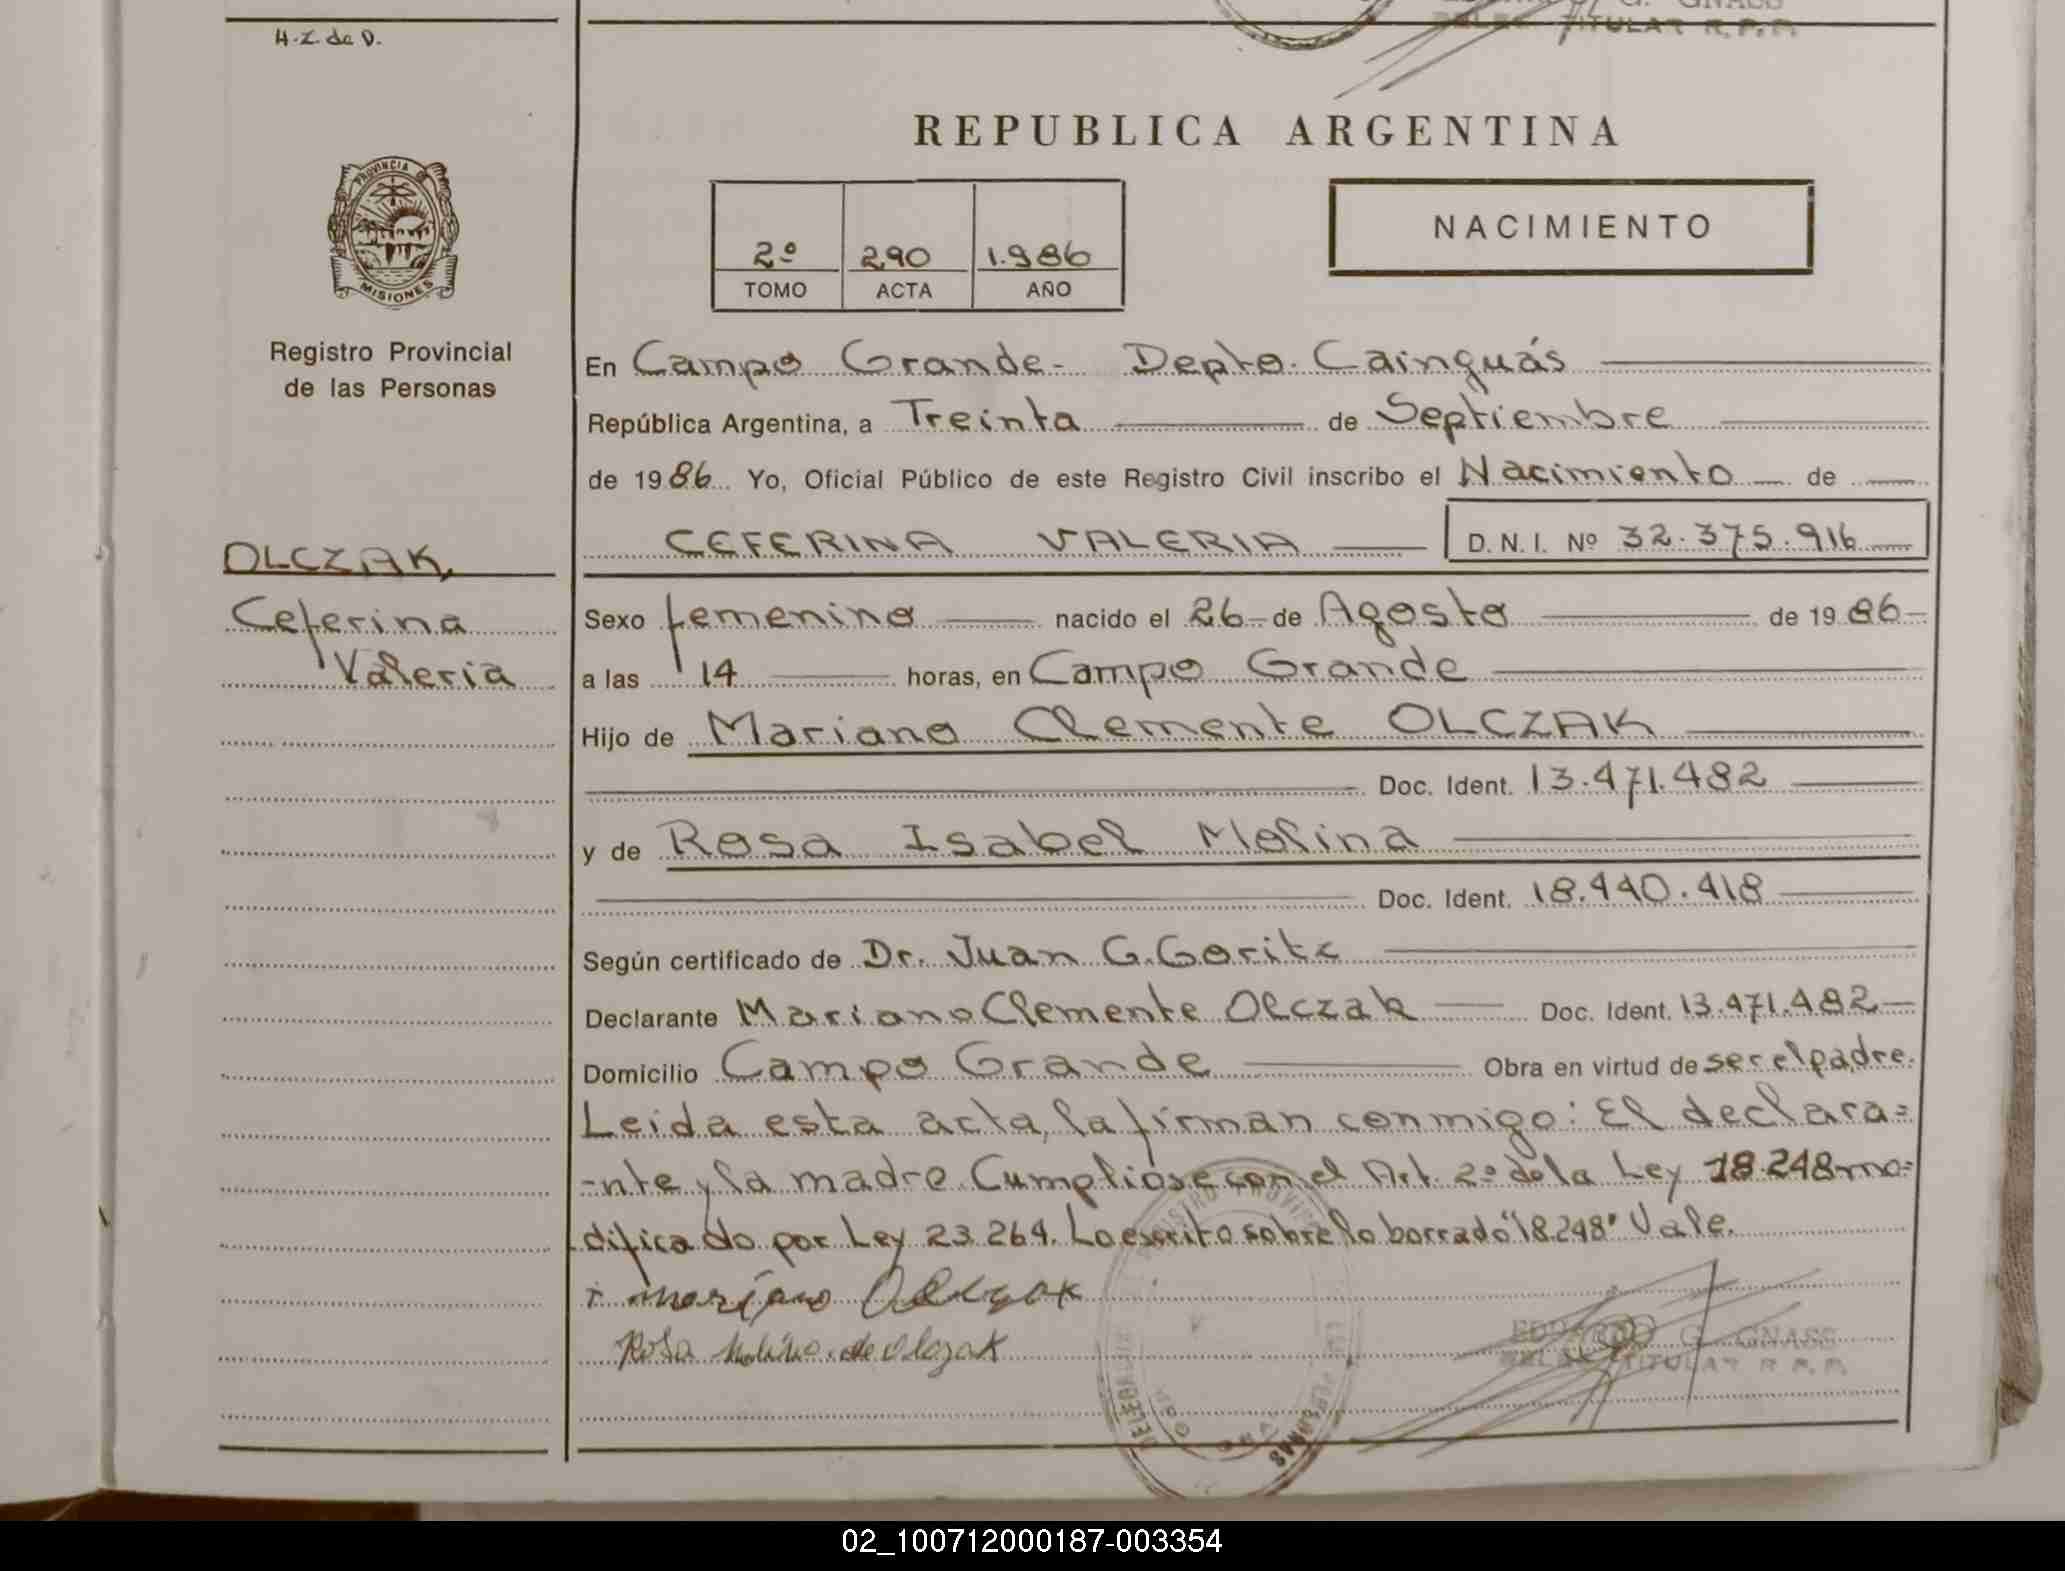 H.Z. de D.
G. GNASS
DELEG. TITULAR R.P.P.
REPUBLICA ARGENTINA
PROVINCIA DE
MISIONES
Registro Provincial
de las Personas
2º 290 1.986
TOMO ACTA AÑO
NACIMIENTO
En Campo Grande- Depto. Cainguás
República Argentina, a Treinta de Septiembre
de 1986 Yo, Oficial Público de este Registro Civil inscribo el Nacimiento de
CEFERINA VALERIA D. N. I. Nº 32.375.916
OLCZAK,
Ceferina
Valeria
Sexo femenino nacido el 26 de Agosto de 1986
a las 14 horas, en Campo Grande
Hijo de Mariano Clemente OLCZAK
Doc. Ident. 13.471.482
y de Rosa Isabel Molina
Doc. Ident. 18.440.418
Según certificado de Dr. Juan G. Goritz
Declarante Mariano Clemente Olczak Doc. Ident. 13.471.482
Domicilio Campo Grande Obra en virtud de ser el padre.
Leida esta acta, la firman conmigo: El declara=
-nte y la madre. Cumplióse con el Art. 2º de la Ley 18.248 mo=
dificado por Ley 23.264. Lo escrito sobre lo borrado "18.248" Vale.
+ mariano Olczak
Rosa Molina de Olczak
EDUARDO G. GNASS
DELEG. TITULAR R.P.P.
02_100712000187-003354